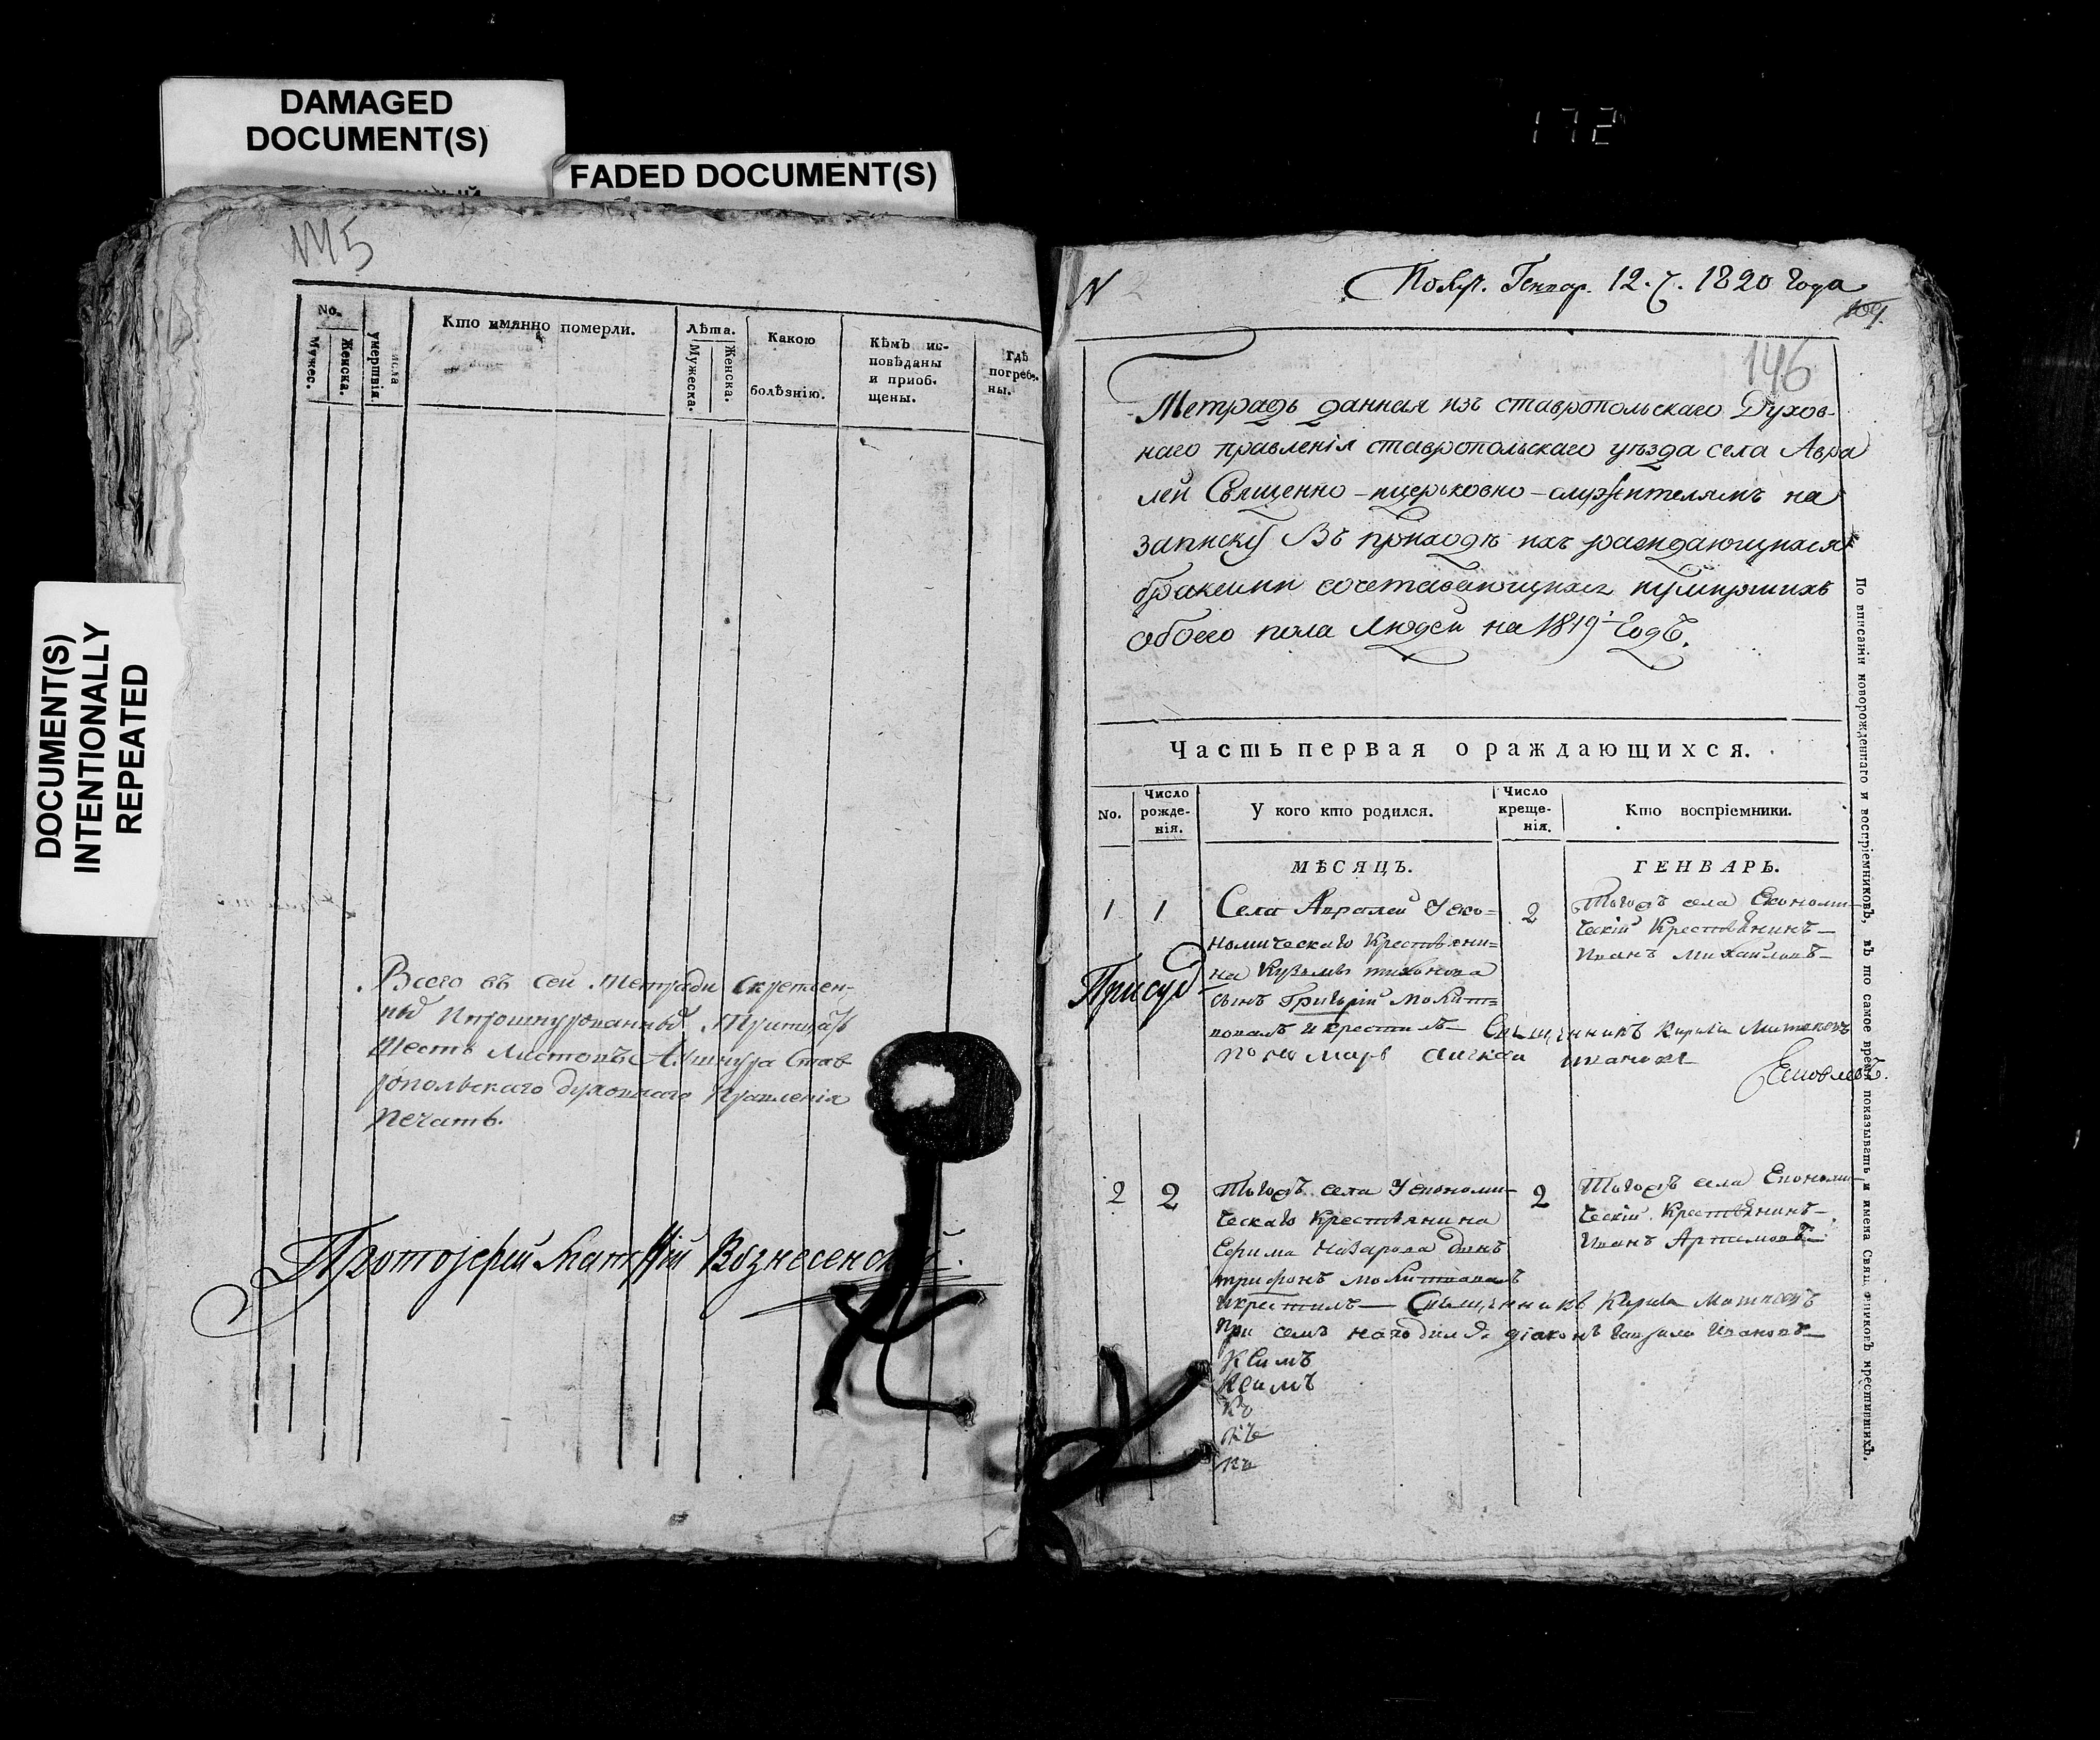 DAMAGED
DOCUMENT(S)
FADED DOCUMENT(S)
DOCUMENT(S)
INTENTIONALLY
REPEATED
172
145
No.
Мужес.
Женска.
числа
умертвія
Кто имянно померли.
Лѣта.
Мужеска.
Женска.
Какою
болѣзнію.
Кѣмъ ис-
повѣданы
и приоб-
щены.
Гдѣ
погребе-
ны.
Всего въ сей тетради скреплен-
ныхъ ипрошнурованныхъ тритцать
шесть листовъ Ашнура Став
ропольскаго духовнаго правленія
печать.
Протоіерей Матѳій Вознесенской.
N 2
Генвар. 12. 1820 года
109.
146
Тетрадь данная изъ ставропольскаго Духов-
наго правленія ставропольскаго уѣзда села Авра
лей Священно-ицерковно-служителямъ на
записку Въ приходѣ ихъ раждающихся
бракомъ сочетавающихся иумершихъ
обоего пола людей на 1819й Годъ.
Часть первая о раждающихся.
No.
Число
рожде-
нія.
У кого кто родился.
Число
креще-
нія.
Кто воспріемники.
МѢСЯЦЪ.
ГЕНВАРЬ.
1
1
Села Авралей Уеко=
номическаго Крестьяни=
на Кузьмы тихонова
сынъ Григорій молит=
вовалъ икрестилъ Священникъ Кирила
пономарь ивановъ
2
Тогожъ села Економи-
ческій Крестьянинъ
Иванъ Михайловъ
2
2
Тогожъ села Уекономи-
ческаго Крестьянина
Ефима Назарова сынъ
трифонъ молитвовалъ
икрестилъ Священникъ Кирила
При семъ находился діаконъ Гаврила Ивановъ
2
Тогожъ села Економи-
ческій Крестьянинъ
Иванъ Артамовъ
Ксимъ
Ксимъ
Къ
Къ
Къ
По вписаніи новорожденнаго и воспріемниковъ, въ то самое время показывать и имена Священниковъ крестившихъ.